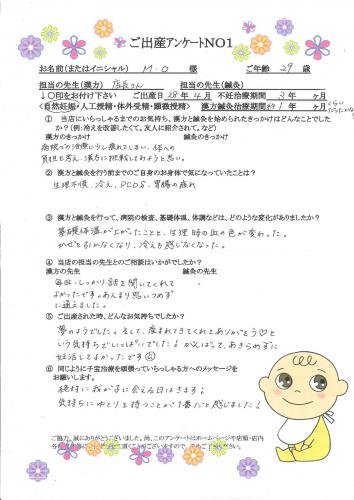 ご出産アンケートNO1
お名前(またはイニシャル) M-O 様 ご年齢 29 歳
担当の先生(漢方) 店長さん 担当の先生(鍼灸)
↓〇印をお付け下さい ご出産日 28年4月 不妊治療期間 3年 ヶ月
<自然妊娠・人工授精・体外受精・顕微授精> 漢方鍼灸治療期間 約1年 ヶ月 くらい
① 当店にいらっしゃるまでのお気持ち、漢方と鍼灸を始められたきっかけはどんなことでした
か?(例:冷えを改善したくて。友人に紹介されて。など)
漢方のきっかけ 鍼灸のきっかけ
病院での治療に少し疲れてしまい、体への
負担も考え、漢方に挑戦しておようと思い。
② 漢方と鍼灸を行う前までのご自身のお身体で気になっていたことは?
生理不順、冷え、PCOS、胃腸の疲れ
③ 漢方と鍼灸を行って、病院の検査、基礎体温、体調などは、どのような変化がありましたか?
基礎体温が上がったことと、生理時の血の色が変わった。
かぜを引かなくなり、冷えも感じなくなった。
④ 当店の担当の先生とのご相談はいかがでしたか?
漢方の先生 鍼灸の先生
毎回、しっかり話を聞いてくれて
よかったです。あんまり思いつめず
に通えました。
⑤ ご出産された時、どんなお気持ちでしたか?
夢のようでした。そして、産まれてきてくれてありがとう♡と
いう気持ちでいっぱいでした!がんばって、あきらめずに
妊活してよかったです
⑥ 同じように子宝治療を頑張っていらっしゃる方へのメッセージを
お願いします。
絶対に我が子に会える日はきます!
気持ちにゆとりを持つことが1番だと感じました!
ご協力、誠にありがとうございました。尚、このアンケートはホームページや店頭・店内